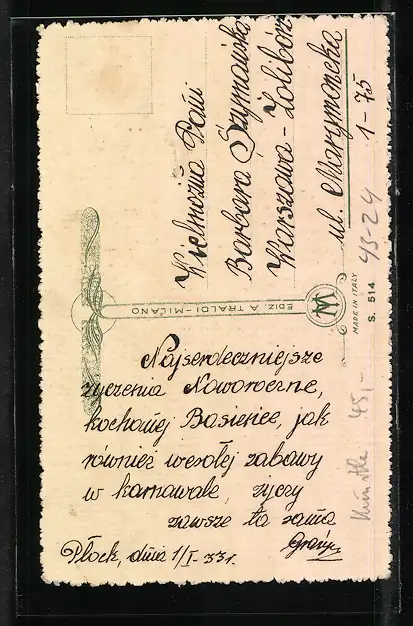 Wielmożna Pani
Barbara Szymańska
Warszawa - Żolibórz
ul. Marymoncka
1-75
EDIZ. A. TRALDI - MILANO
MADE IN ITALY
S. 514
43-24
Najserdeczniejsze
życzenia Noworoczne,
kochanej Basieńce, jak
również wesołej zabawy
w karnawale, życzy
zawsze ta sama
Płock, dnia 1/I - 33 r.
45,-